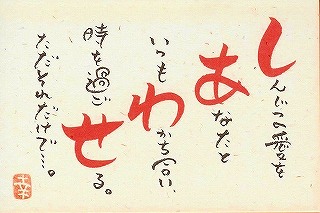 しんじつの愛を
あなたと
いつもわかち合い
時を過ごせる。
ただそれだけで…。
幸